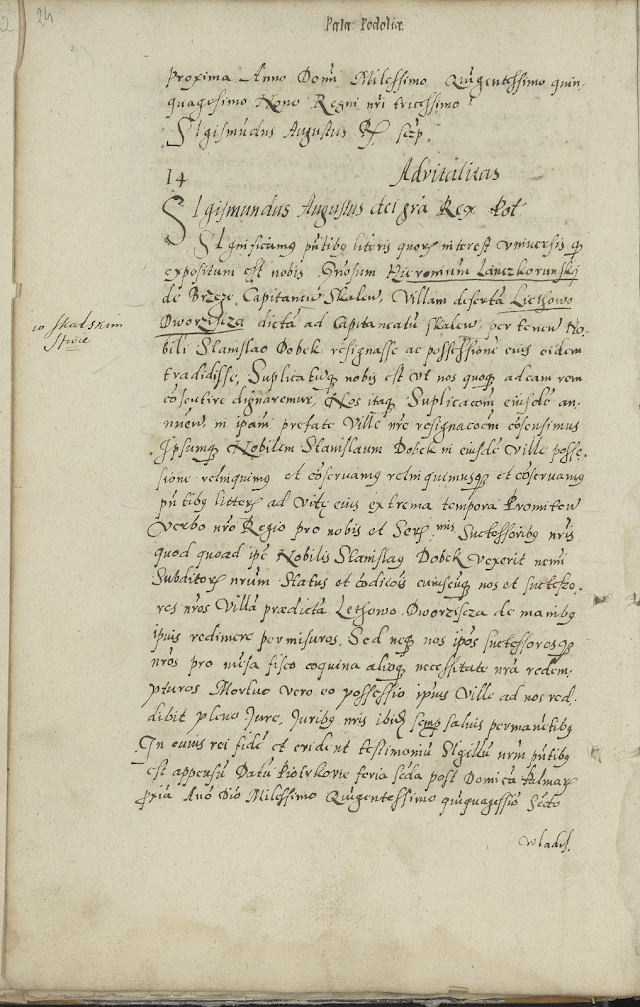 24
Pala: Podoliæ.
proxima Anno Domi Milessimo Quigentessimo quin,
quagesimo Nono Regni nri tricessimo
Sigismudus Augustus Rx scrp.
14 Advitalitas
Sigismundus Augustus dei gra Rex Pol
Significamq pntibq literis quorx interest vniuersis q
expositum est nobis Gnosum Hieronimum Lanczkorunskj
de Brzeze Capitaneu Skalen, Villam deserta Liethowo
Dworzisza dicta ad Capitaneatu Skalen, pertenen No,
w Skalskim
Stwie
bili Stanislao Dobek resignasse ac possessione eius eidem
tradidisse, Suplicatuq nobis est vt nos quoq ad eam rem
cosentire dignaremur, Nos itaq Suplicacoem eiusde an,
nuen, in ipam prefate Ville nre resignacoem cosensimus
Ipsumq Nobilem Stanislaum Dobek in eiusde Ville posse,
sione relinquimq et coseruamq relinquimusq et coseruamq
pntibq litterx ad vite eius extrema tempora Promitten
Verbo nro Regio pro nobis et Serx mis Suctessoribq nris
quod quoad ipe Nobilis Stanislaq Dobek vexerit nemi
Subditorx nrum Status et codicois cuiuscuq nos et suctesso,
res nros Villa prædicta Lethowo Dworzisza de manibq
ipuis redimere permisuros, Sed neq nos ipos suctessoresq
nros pro mesa fisco coquina alioq necessitate nra redem,
pturos Mortuo vero eo possessio ipius Ville ad nos red,
dibit pleno Jure, Juribq nris ibide semp saluis permanetibq
In cuius rei fide et evident testimoniu Sigillu nrm pntibq
est appensu Datu Piotrkovie feria scda post Domica Palmarx
pxia Ano Dio Milessimo Quigentessimo quiquagessio Secto
wladis.